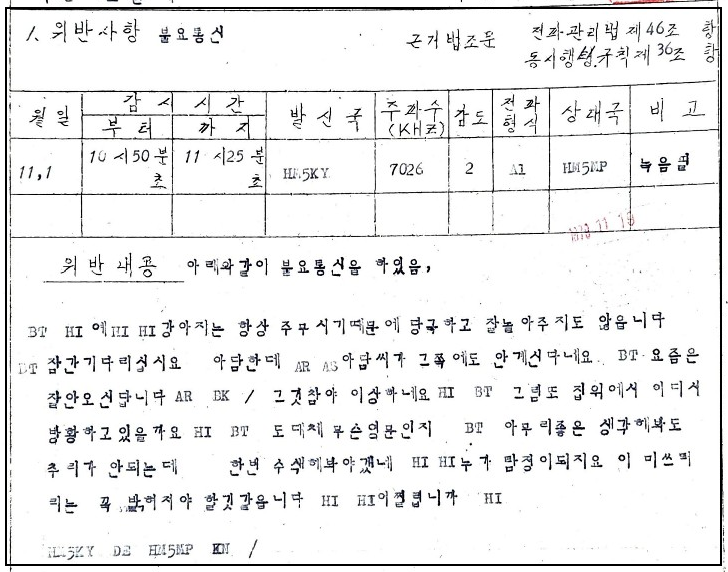 1. 위반사항 불요통신
근거법조문 전파관리법 제 46조 항
동시행 규칙 제 36조 항
월일 감시 시간 발신국 주파수 (KHz) 감도 전파형식 상대국 비고
부터 까지
11,1 10시50분 초 11시25분 초 HM5KY 7026 2 A1 HM5MP 녹음필
위반내용 아래와같이 불요통신을 하였음,
BT HI 에HI HI강아지는 항상 주무시기때문에 당국하고 잘놀아주지도 않읍니다
BT 잠간기다리십시요 아담한데 AR AS아담씨가 그쪽에도 안계신다네요 BT 요즘은
잘안오신답니다 AR BK / 그것참야 이상하네요 HI BT 그럼또 집위에서 어디서
방황하고있을까요 HI BT 도대체 무슨영문인지 BT 아무리좋은 생각해봐도
추리가 안되는데 한번 수색해봐야겠네 HI HI누가 탐정이되지요 이 미쓰테
리는 꼭 밝혀져야 할것같읍니다 HI HI어쩔렵니까 HI
HM5KY DE HM5MP KN /